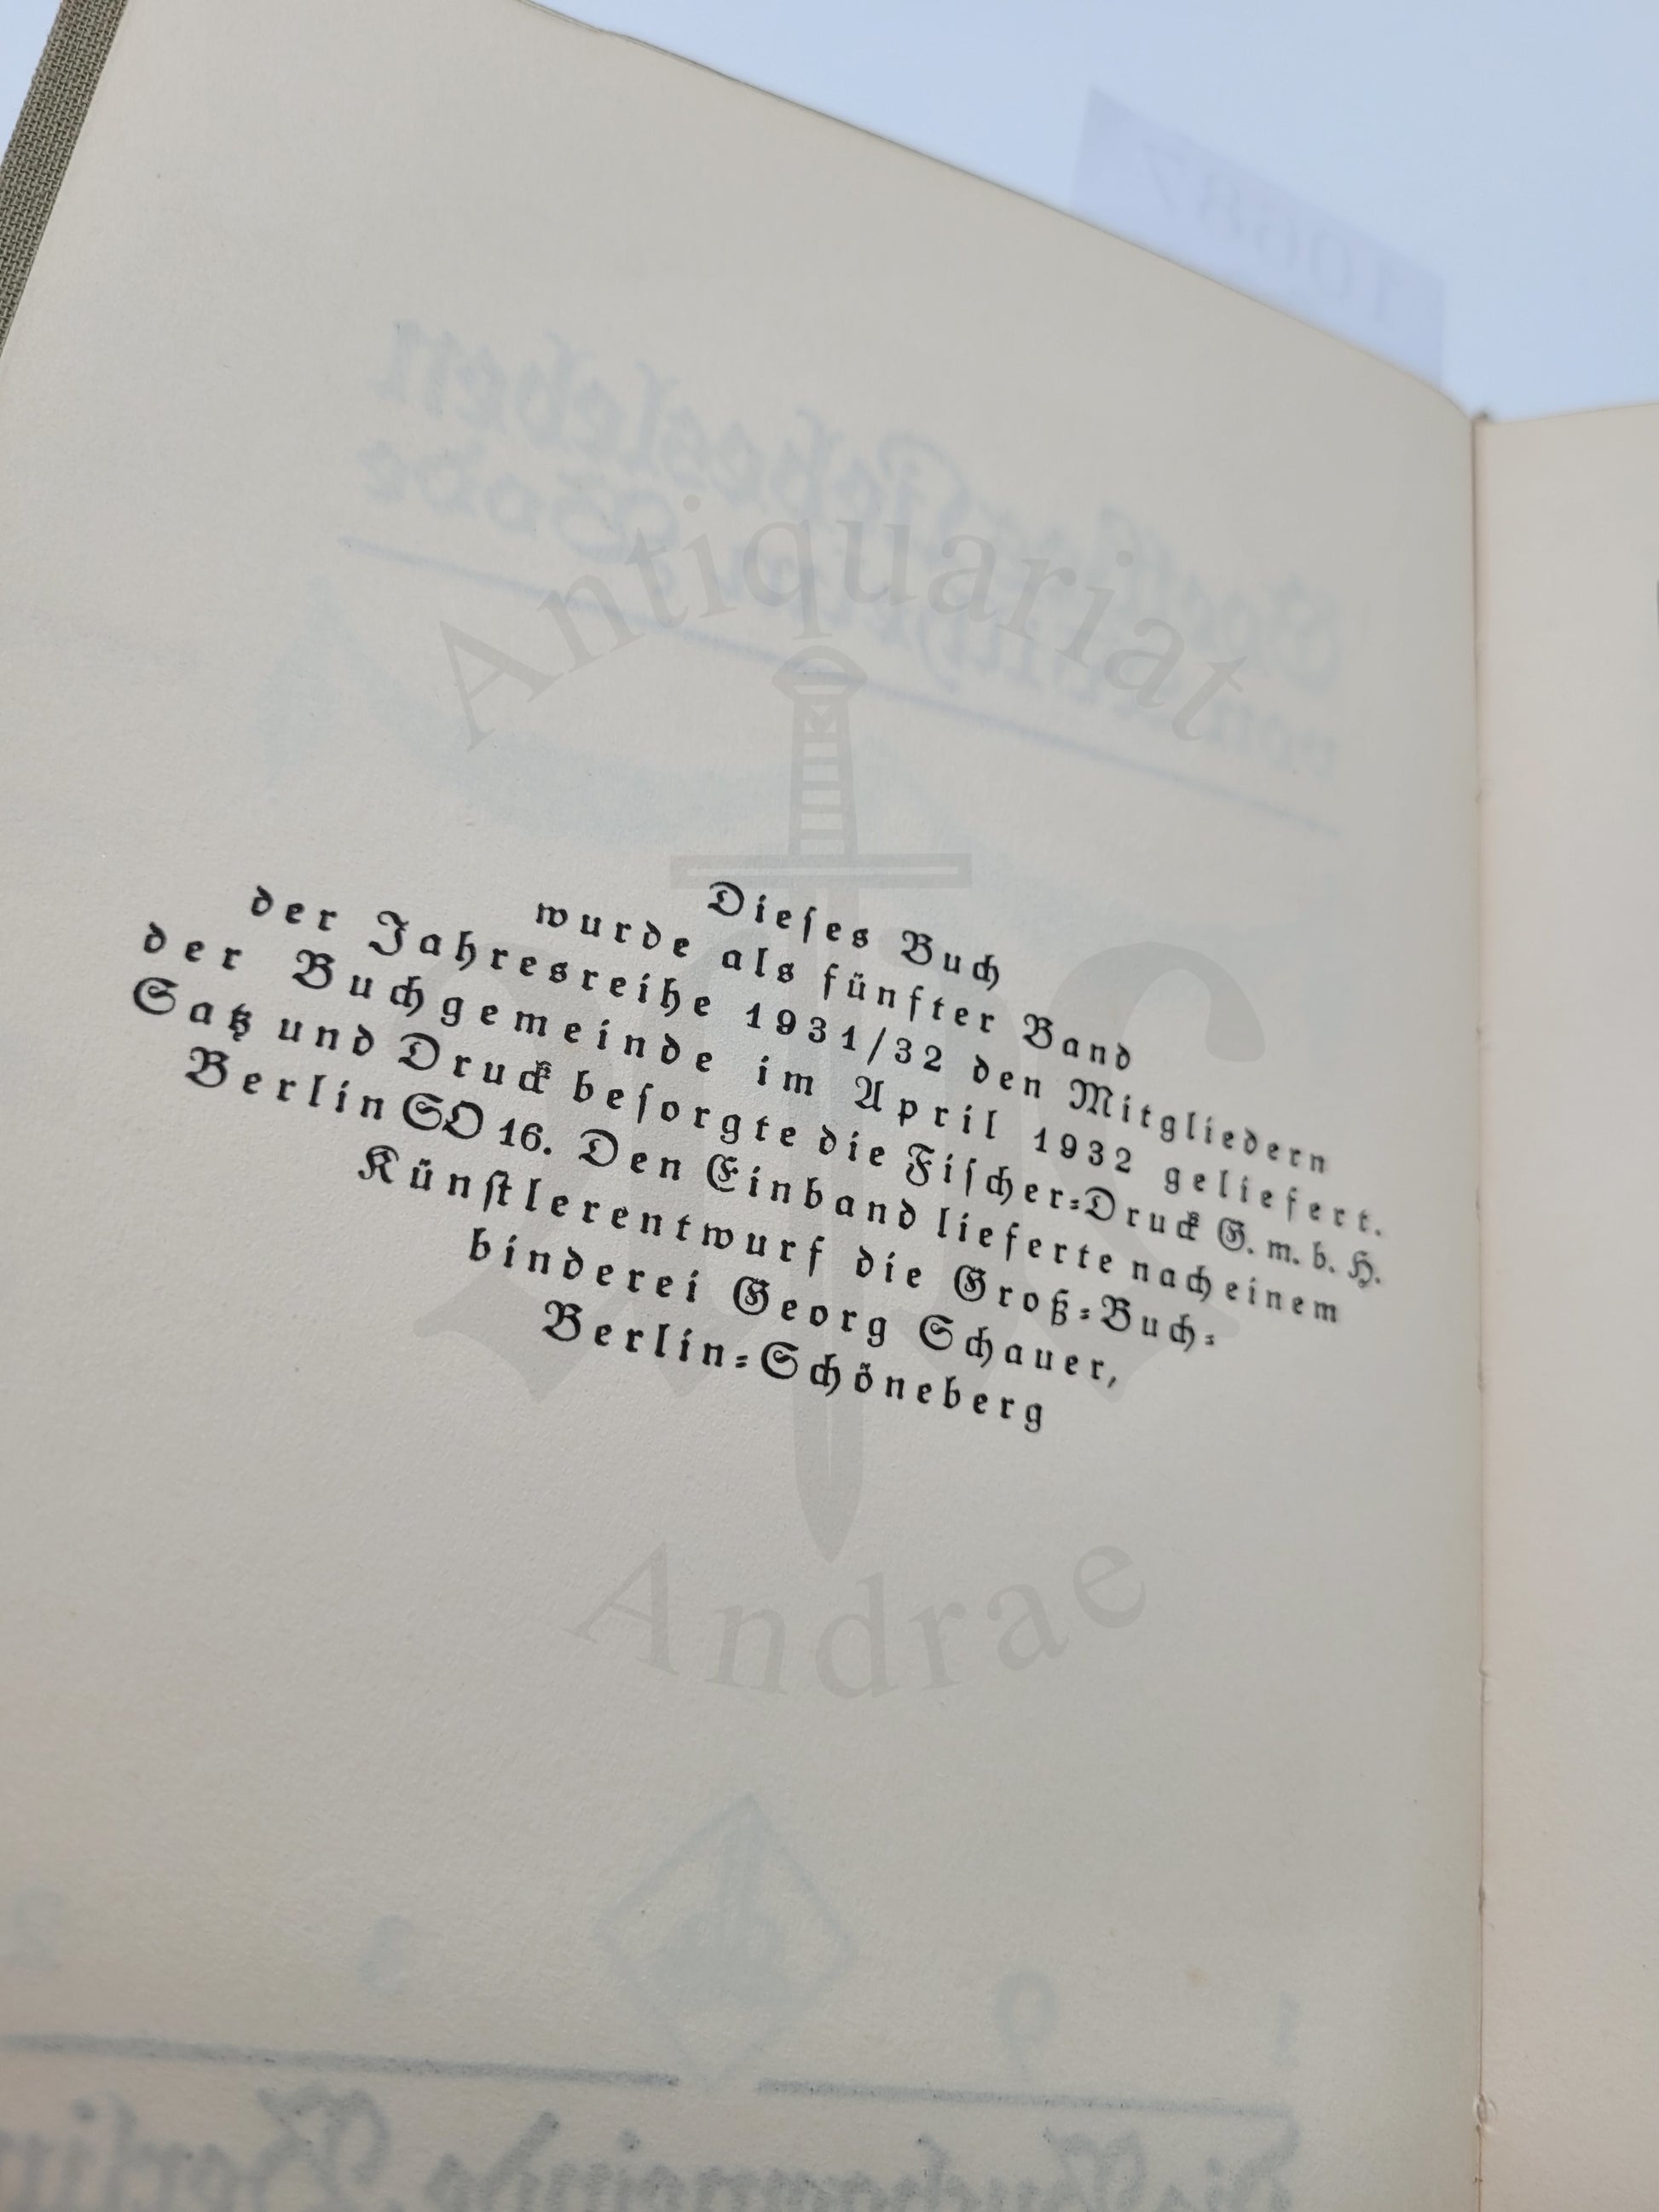 10687
Dieſes Buch
wurde als fünfter Band
der Jahresreihe 1931/32 den Mitgliedern
der Buchgemeinde im April 1932 geliefert.
Satz und Druck beſorgte die Fiſcher-Druck G. m. b. H.
Berlin SO 16. Den Einband lieferte nach einem
Künſtlerentwurf die Groß-Buch-
binderei Georg Schauer,
Berlin-Schöneberg
Antiquariat
Andrae
1 9 3 2
Die Buchgemeinde Berlin